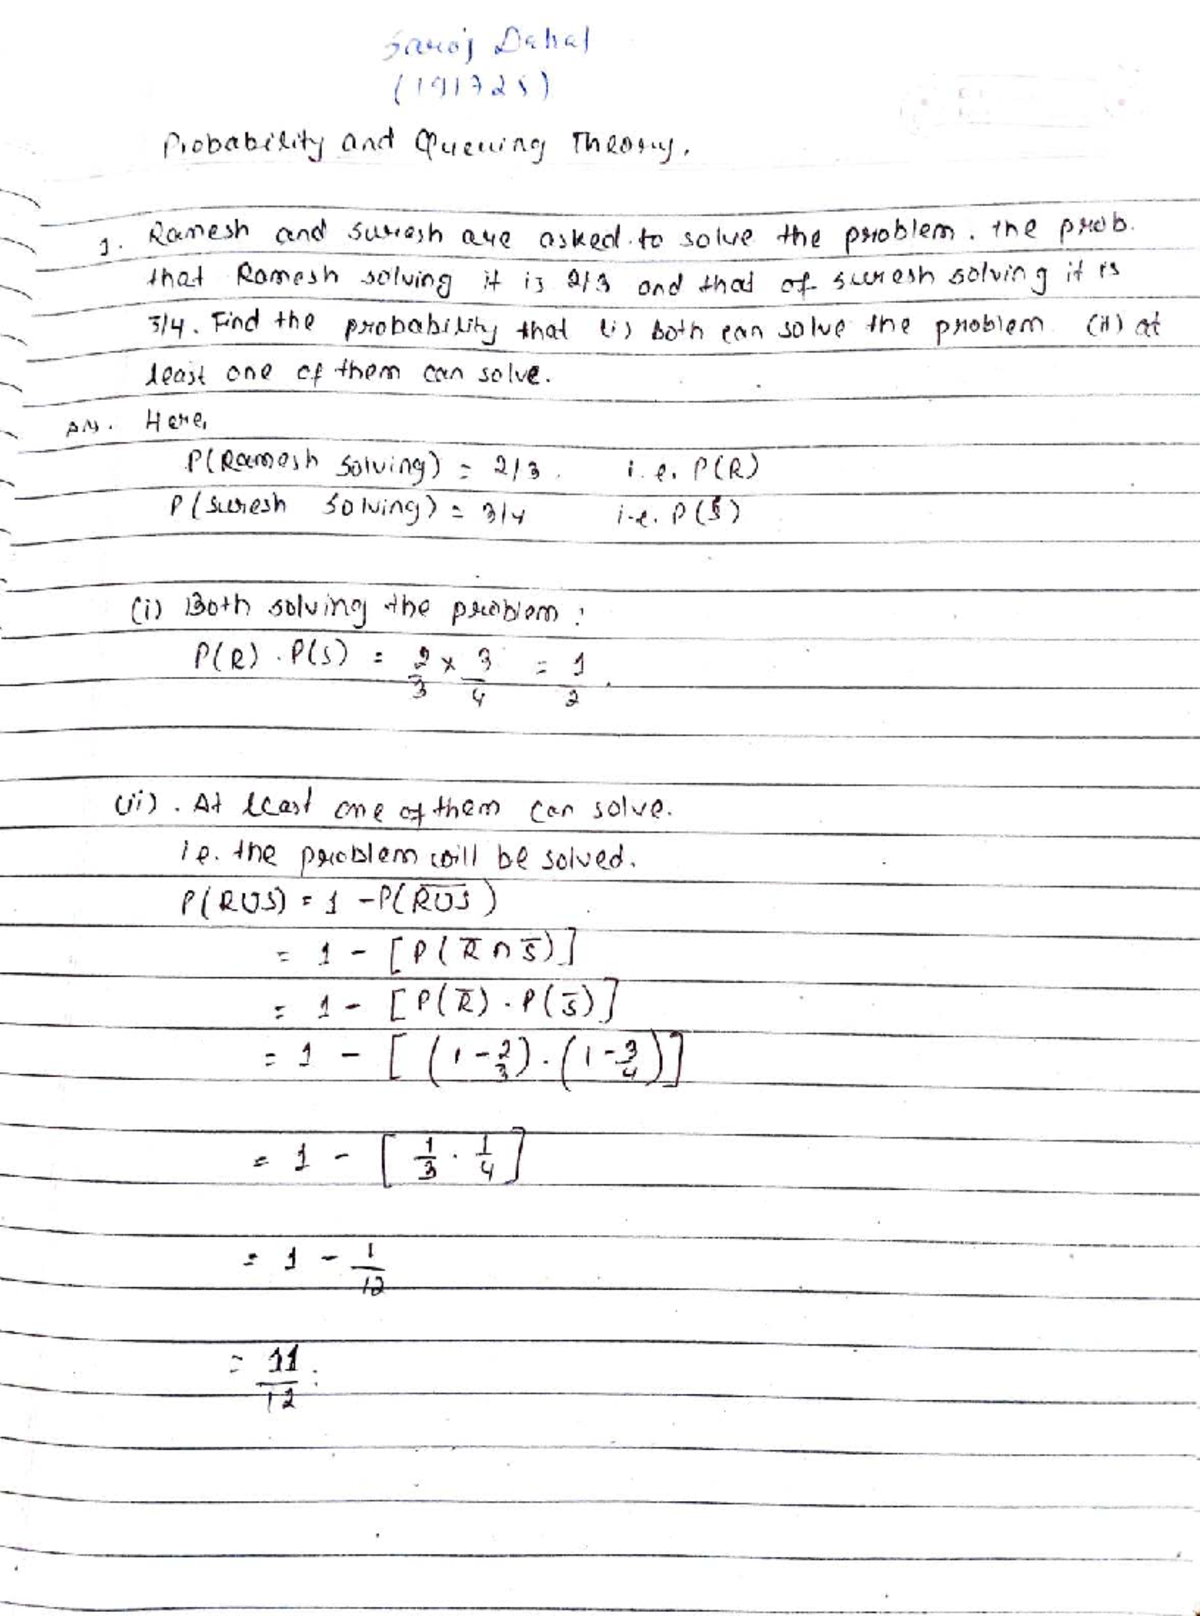 Saroj Dahal
(191725)
Probability and Queuing Theory.
1. Ramesh and Suresh are asked to solve the problem. the prob.
that Ramesh solving it is 2/3 and that of suresh solving it is
3/4. Find the probability that (i) both can solve the problem (ii) at
least one of them can solve.
Ans. Here,
P(Ramesh solving) = 2/3. i.e. P(R)
P(suresh solving) = 3/4 i.e. P(S)
(i) Both solving the problem:
P(R) . P(S) = 2/3 × 3/4 = 1/2.
(ii). At least one of them can solve.
i.e. the problem will be solved.
P(R∪S) = 1 - P(R̅∪̅S̅)
= 1 - [P(R̅ ∩ S̅)]
= 1 - [P(R̅) . P(S̅)]
= 1 - [(1 - 2/3) . (1 - 3/4)]
= 1 - [1/3 . 1/4]
= 1 - 1/12
= 11/12.